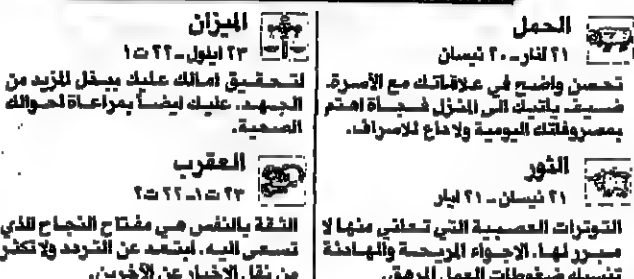 الحمل
٢١ اذار - ٢٠ نيسان
تحسن واضح في علاقاتك مع الأسرة.
ضيف يأتيك الى المنزل فجأة اهتم
بمصروفاتك اليومية ولا داع للاسراف.
الثور
٢١ نيسان - ٢١ ايار
التوترات العصبية التي تعاني منها لا
مبرر لها. الاجواء المريحة والهادئة
تنسيك ضغوطات العمل المرهق.
الميزان
٢٣ ايلول - ٢٢ ت١
لتحقيق امالك عليك ببذل المزيد من
الجهد. عليك ايضاً بمراعاة احوالك
الصحية.
العقرب
٢٣ ت١ - ٢٢ ت٢
الثقة بالنفس هي مفتاح النجاح الذي
تسعى اليه. ابتعد عن التردد ولا تكثر
من نقل الاخبار عن الآخرين.